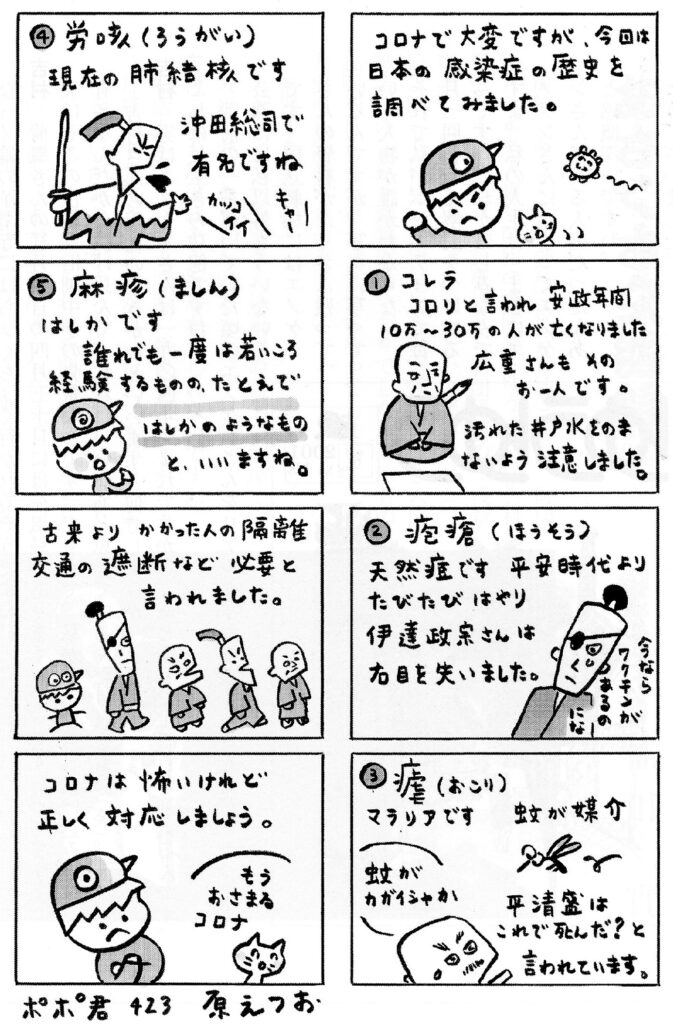 コロナで大変ですが、今回は
日本の感染症の歴史を
調べてみました。
① コレラ
コロリと言われ 安政年間
10万〜30万の人が亡くなりました
広重さんもその
お一人です。
汚れた井戸水をのま
ないよう注意しました。
② 疱瘡(ほうそう)
天然痘です 平安時代より
たびたびはやり
伊達政宗さんは
右目を失いました。
今なら
ワクチンが
あるの
にな
③ 瘧(おこり)
マラリアです 蚊が媒介
蚊が
カガイシャか
平清盛は
これで死んだ?と
言われています。
④ 労咳(ろうがい)
現在の肺結核です
沖田総司で
有名ですね
カッコ
イイ
キャー
⑤ 麻疹(ましん)
はしかです
誰れでも一度は若いころ
経験するものの、たとえで
はしかのようなもの
と、いいますね。
古来よりかかった人の隔離
交通の遮断など必要と
言われました。
コロナは怖いけれど
正しく対応しましょう。
もう
おさまる
コロナ
ポポ君 423 原えつお